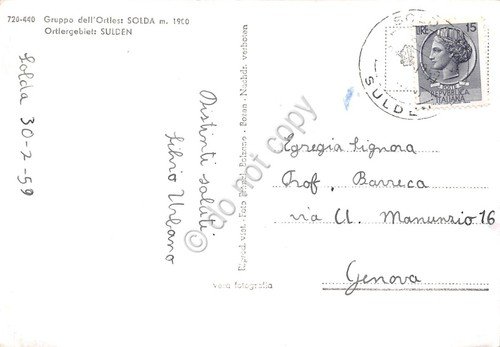 720-440 Gruppo dell'Ortles: SOLDA m. 1900
Ortlergebiet: SULDEN
Solda 30-7-59
Distinti saluti
Silvio Urbano
Riprod. viet. - Foto - Bolzano - Bozen - Nachdr. verboten
vera fotografia
SOLDA
SULDEN
LIRE 15
REPVBBLICA
ITALIANA
Egregia Signora
Prof. Barreca
via A. Manunzio 16
Genova
© do not copy